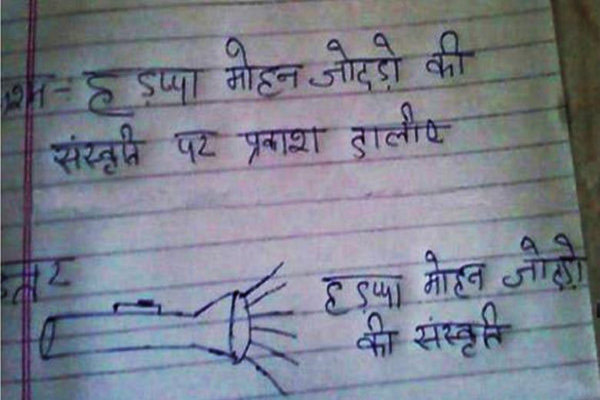 प्रश्न- हड़प्पा मोहन जोदड़ो की
संस्कृति पर प्रकाश डालीए
उत्तर
हड़प्पा मोहन जोदड़ो
की संस्कृति